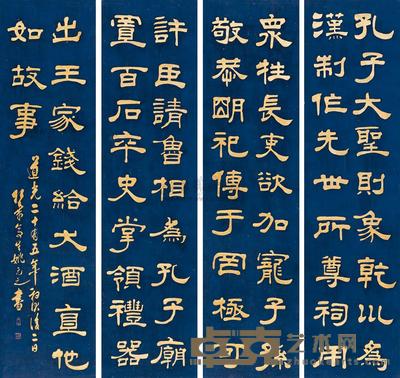 孔子大聖則象乾川為
漢制作先世所尊祠用
眾牲長吏欲加寵子孫
敬恭明祀傳于罔極可
許臣請魯相為孔子廟
置百石卒史掌領禮器
出王家錢給大酒直他
如故事
道光二十有五年初秋後二日
竹葉亭生姚元之書